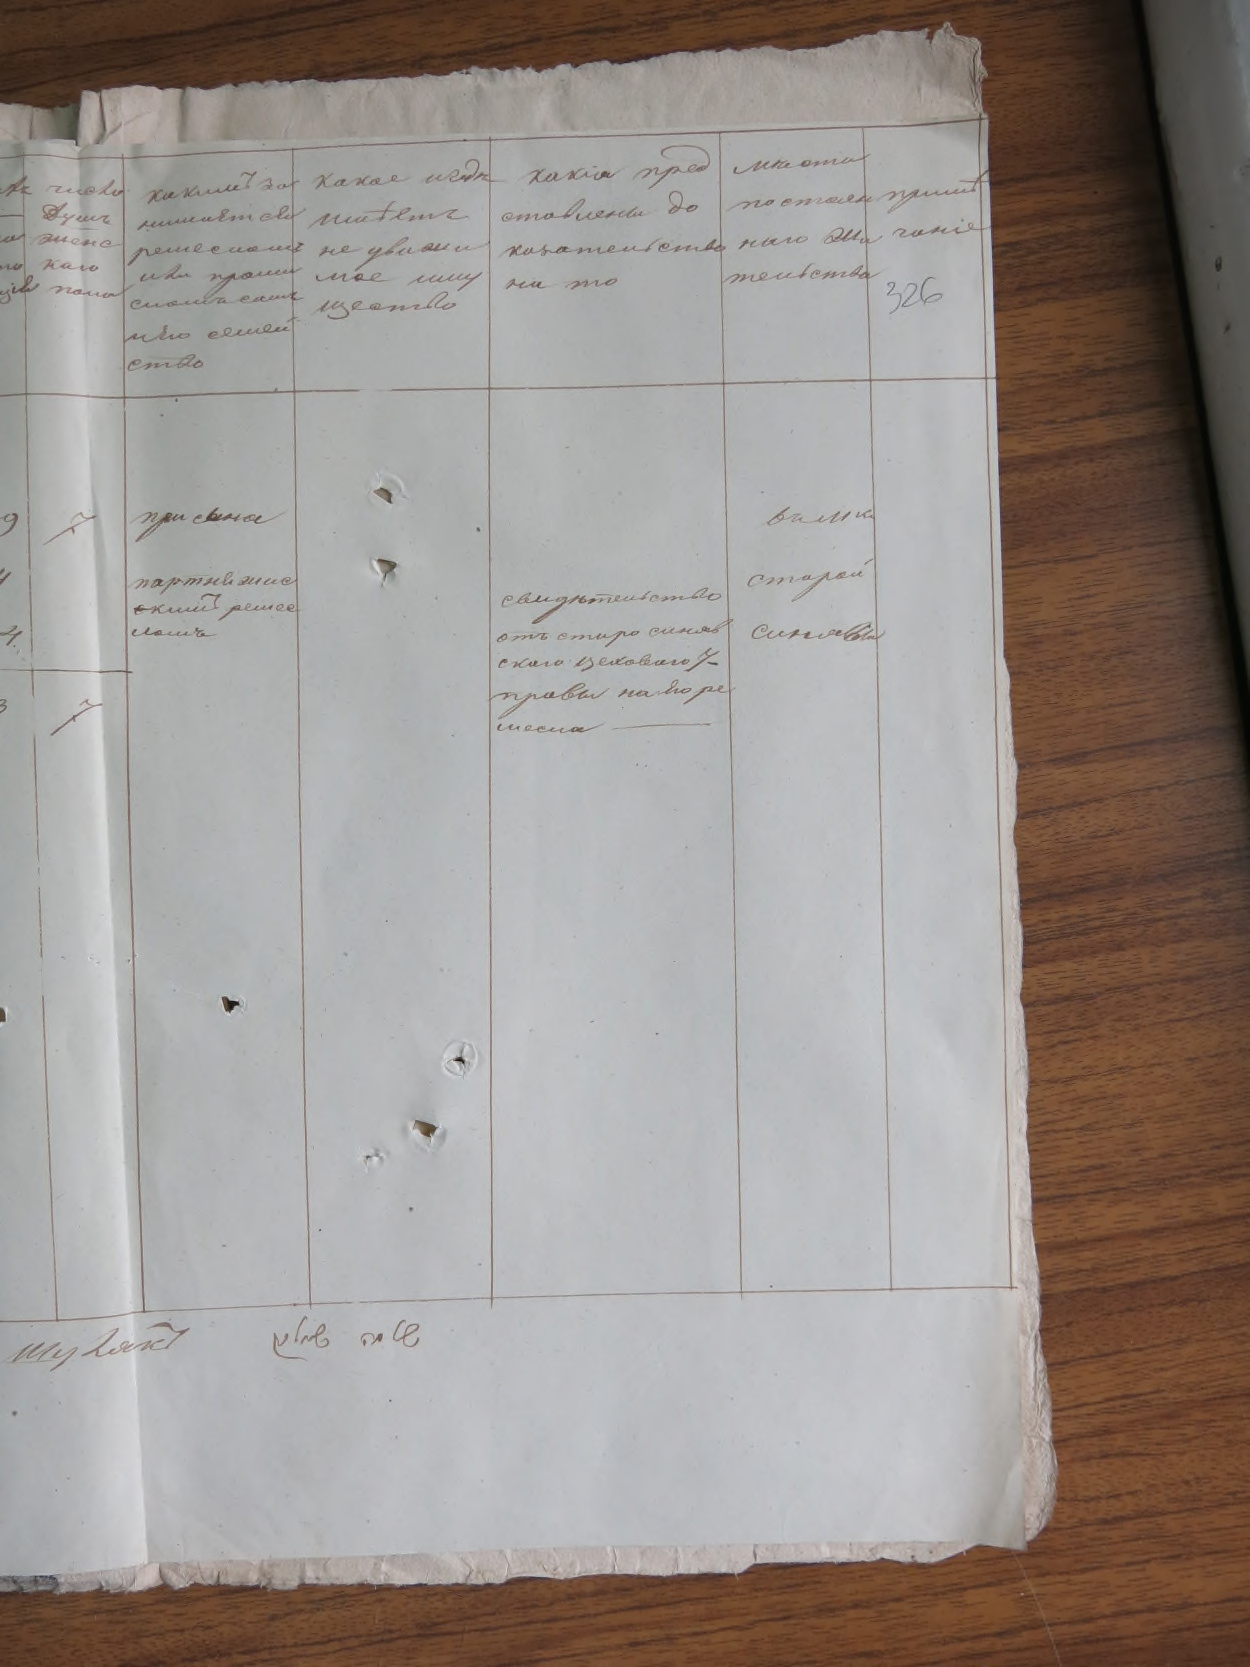 число
душъ
женс
каго
пола
какимъ за
нимаетсва
ремесломъ
или промы
сломъ самъ
иѣго семей
ство
какое и гдѣ
имѣетъ
не движи
мое иму
щество
какія пред
ставлены до
казательство
на то
мѣста
постоян
наго жи
тельства
примѣ
чаніе
326
7
при сына
партняжис
скимъ ремес
ломъ
свидѣтельство
отъ старо синяв
скаго цеховаго У
правы на его ре
месла
старой
синявы
7
שלמה